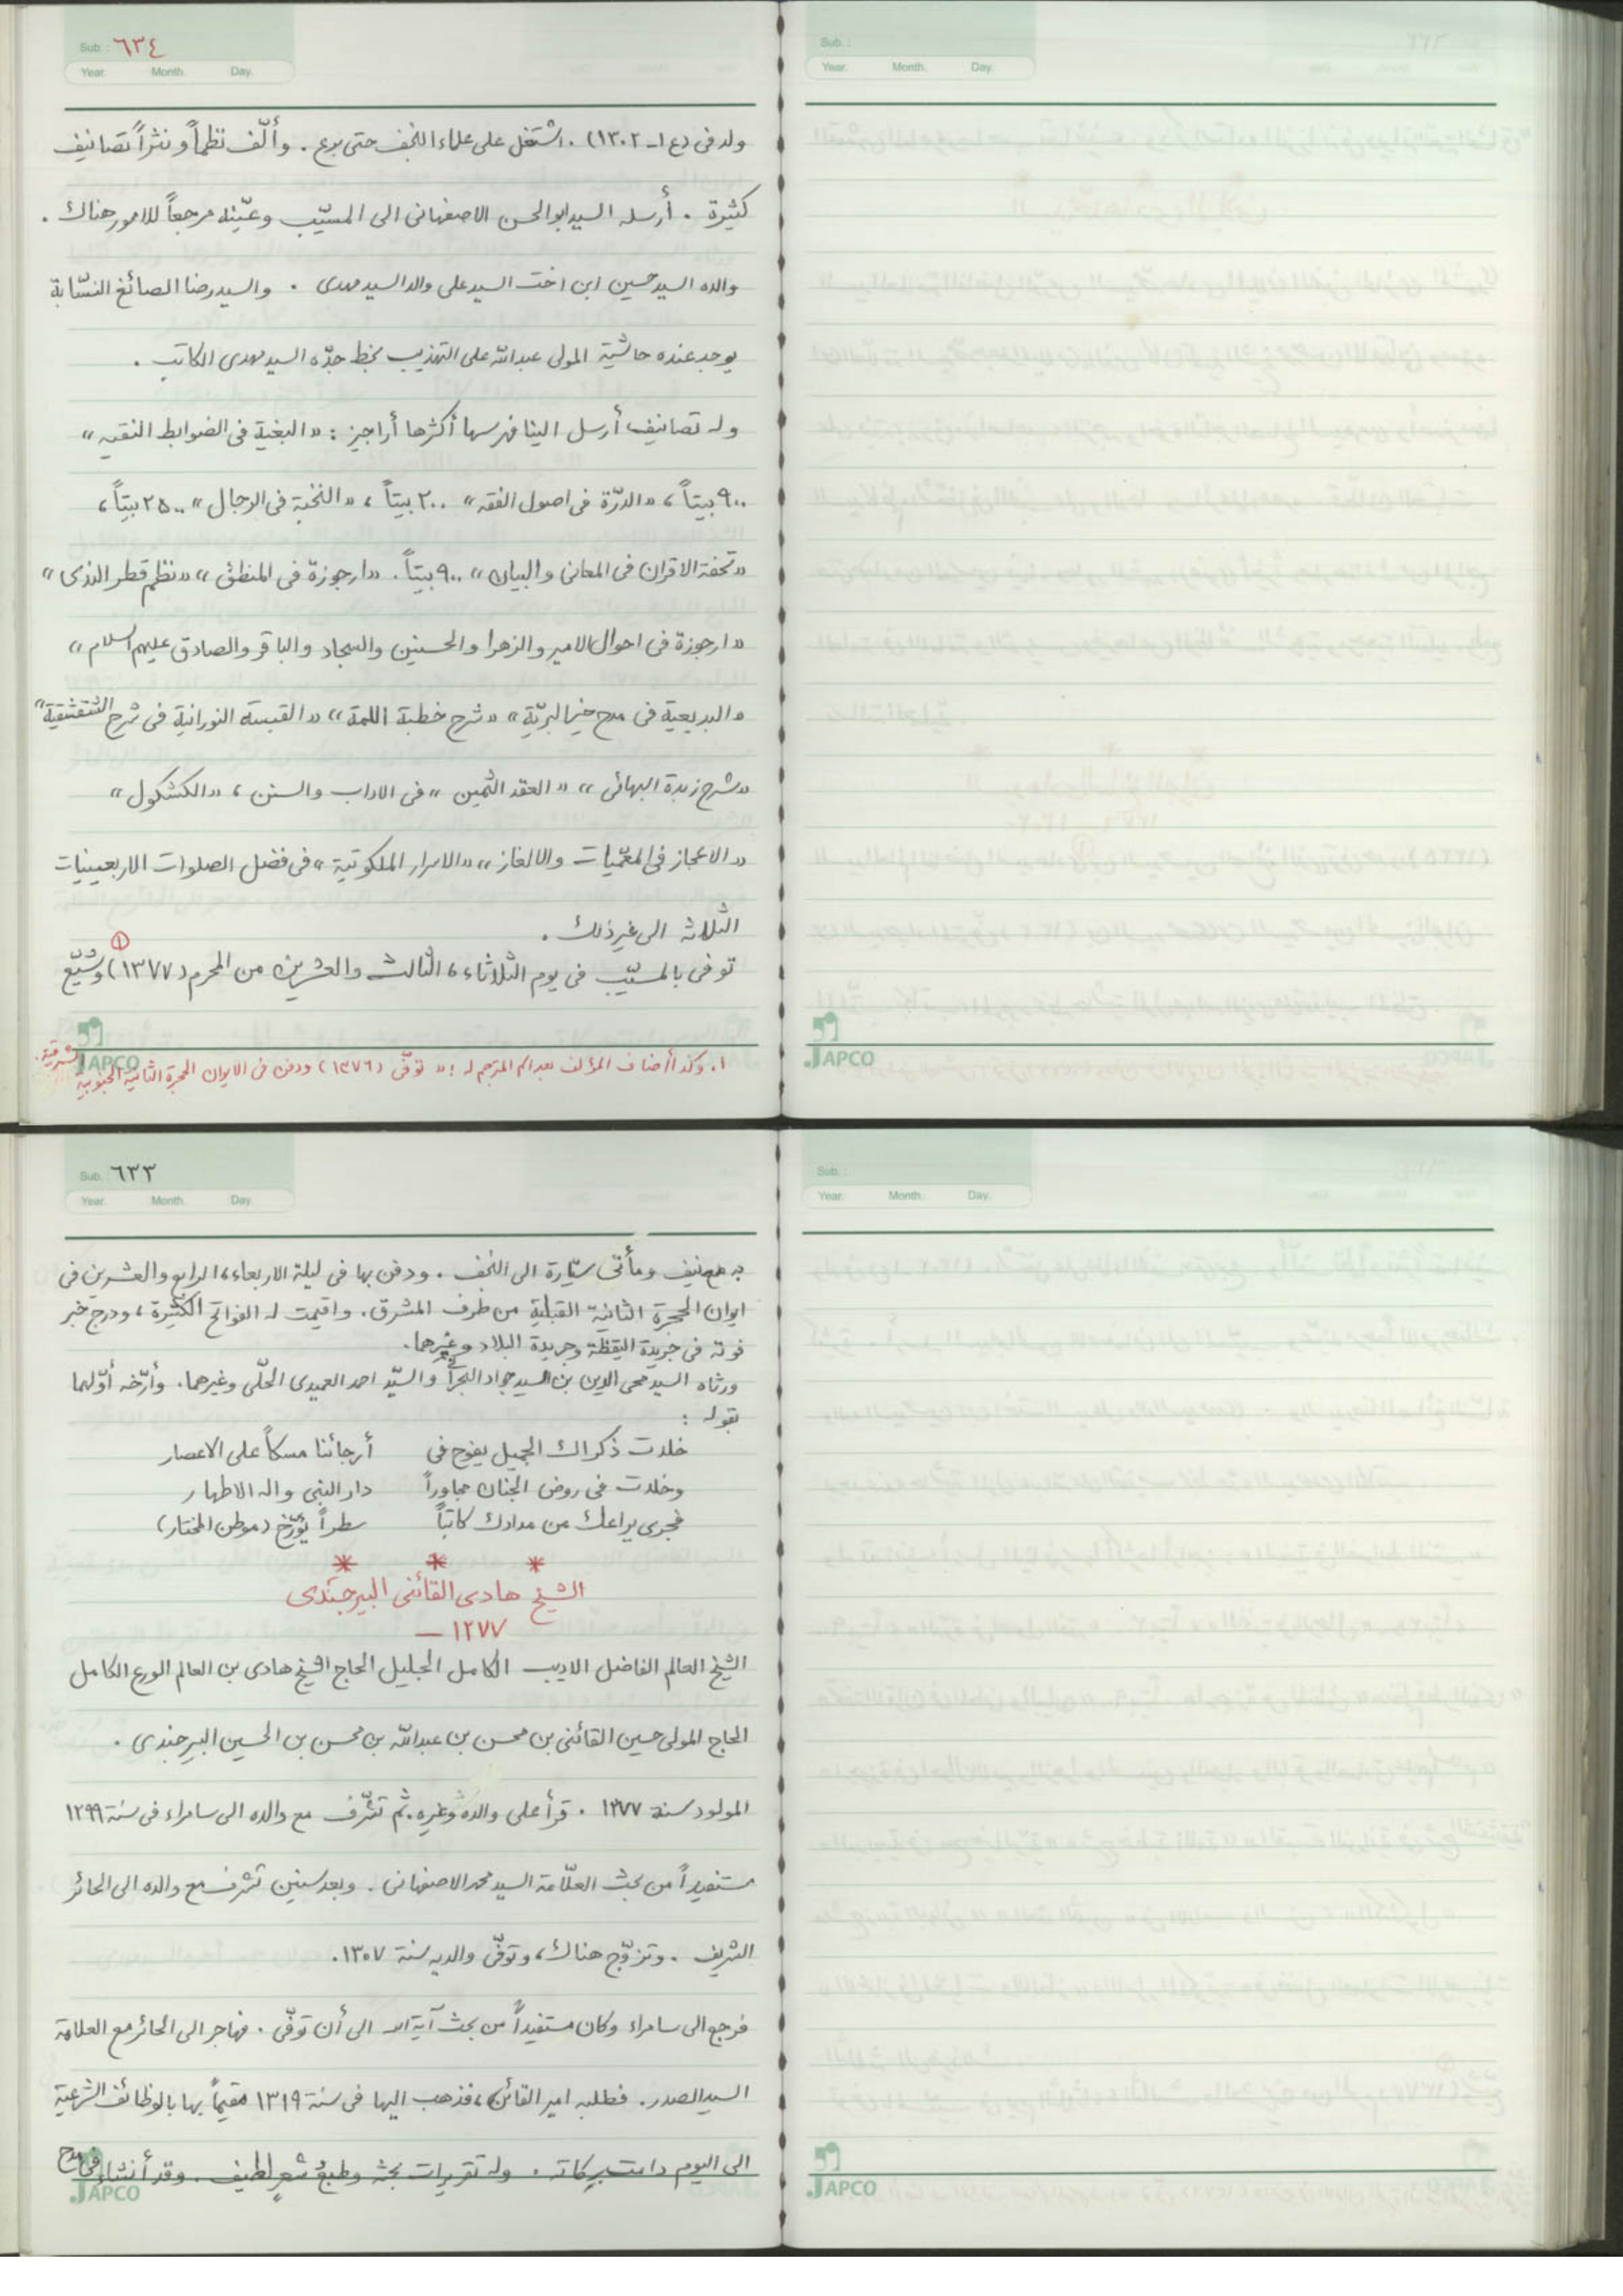 Sub : ٦٣٤
Year. Month. Day.
ولد في (ع١ـ١٣٠٢) . اشتغل على علماء النجف حتى برع . وألّف نظماً و نثراً تصانيف
كثيرة . أرسله السيد ابوالحسن الاصفهاني الى المسيّب وعيّنه مرجعاً للامور هناك .
والده السيد حسين ابن اخت السيد على والد السيد مهدى . والسيد رضا الصائغ النسّابة
يوجد عنده حاشية المولى عبدالله على التهذيب بخط جدّه السيد مهدى الكاتب .
وله تصانيف أرسل الينا فهرسها أكثرها أراجيز : «البغية في الضوابط النقيه»
٩٠٠ بيتاً، «الدرّة فى اصول الفقه» ٢٠٠ بيتاً، «النخبة في الرجال» ٢٥٠٠ بيتاً،
«تحفة الاقران فى المعانى والبيان» ٩٠٠ بيتاً. «ارجوزة فى المنطق» «نظم قطر الندى»
«ارجوزة فى احوال الامير والزهرا والحسنين والسجاد والباقر والصادق عليهم السلام»
«البديعية فى مدح خير البريّة» «شرح خطبة اللمة» «القبسة النورانية فى شرح الشقشقية»
«شرح زبدة البهائى» «العقد الثمين» فى الاداب والسنن، «الكشكول»
«الاعجاز فى المعمّيات والالغاز»، «الاسرار الملكوتية» فى فضل الصلوات الاربعينيات
الثلاثه الى غير ذلك .
توفى بالمسيّب فى يوم الثلاثاء، الثالث والعشرين من المحرم (١٣٧٧) ① وشيّع
١. وكذا أضاف المؤلف بعد اسم المترجم له : «توفّى (١٣٧٦) ودفن فى الايوان الحجرة الثانية الجنوبية الشرقية.
JAPCO
Sub. :
Year. Month. Day.
JAPCO
Sub. ٦٣٣
Year. Month. Day.
به معنيف ومأتى سيّارة الى النجف . ودفن بها فى ليلة الاربعاء، الرابع والعشرين فى
ايوان الحجرة الثانية القبلية من طرف المشرق. واقيمت له الفواتح الكثيرة، ودرج خبر
فوته فى جريدة اليقظة وجريدة البلاد وغيرهما.
ورثاه السيد محى الدين بن السيد جواد البحرانى والسيّد احمد العميدى الحلّى وغيرهما. وأرّخه أوّلهما
بقوله :
خلدت ذكراك الجميل يفوح فى أرجائنا مسكاً على الاعصار
وخلدت فى روض الجنان مجاوراً دار النبى واله الاطهار
فجرى يراعك من مدادك كاتباً سطراً يؤرّخ (موطن المختار)
* * *
الشيخ هادى القائنى البيرجندى
١٢٧٧ —
الشيخ العالم الفاضل الاديب الكامل الجليل الحاج الشيخ هادى بن العالم الورع الكامل
الحاج المولى حسين القائنى بن محسن بن عبدالله بن محسن بن الحسين البيرجندى .
المولود سنة ١٢٧٧ . قرأ على والده وغيره. ثم تشرّف مع والده الى سامراء فى سنة ١٢٩٩
مستفيداً من بحث العلّامة السيد محمد الاصفهانى . وبعد سنين تشرف مع والده الى الحائر
الشريف . وتزوّج هناك، وتوفّى والديه سنة ١٣٠٧.
فرجع الى سامراء وكان مستفيداً من بحث آية الله الى أن توفّى . فهاجر الى الحائر مع العلامة
السيد الصدر. فطلبه امير القائن، فذهب اليها فى سنة ١٣١٩ مقيماً بها بالوظائف الشرعية
الى اليوم دامت بركاته . وله تقريرات بحثه وطبعُ شعرٍ لطيف . وقد أنشاء فى مدح
JAPCO
Sub. :
Year. Month. Day.
JAPCO